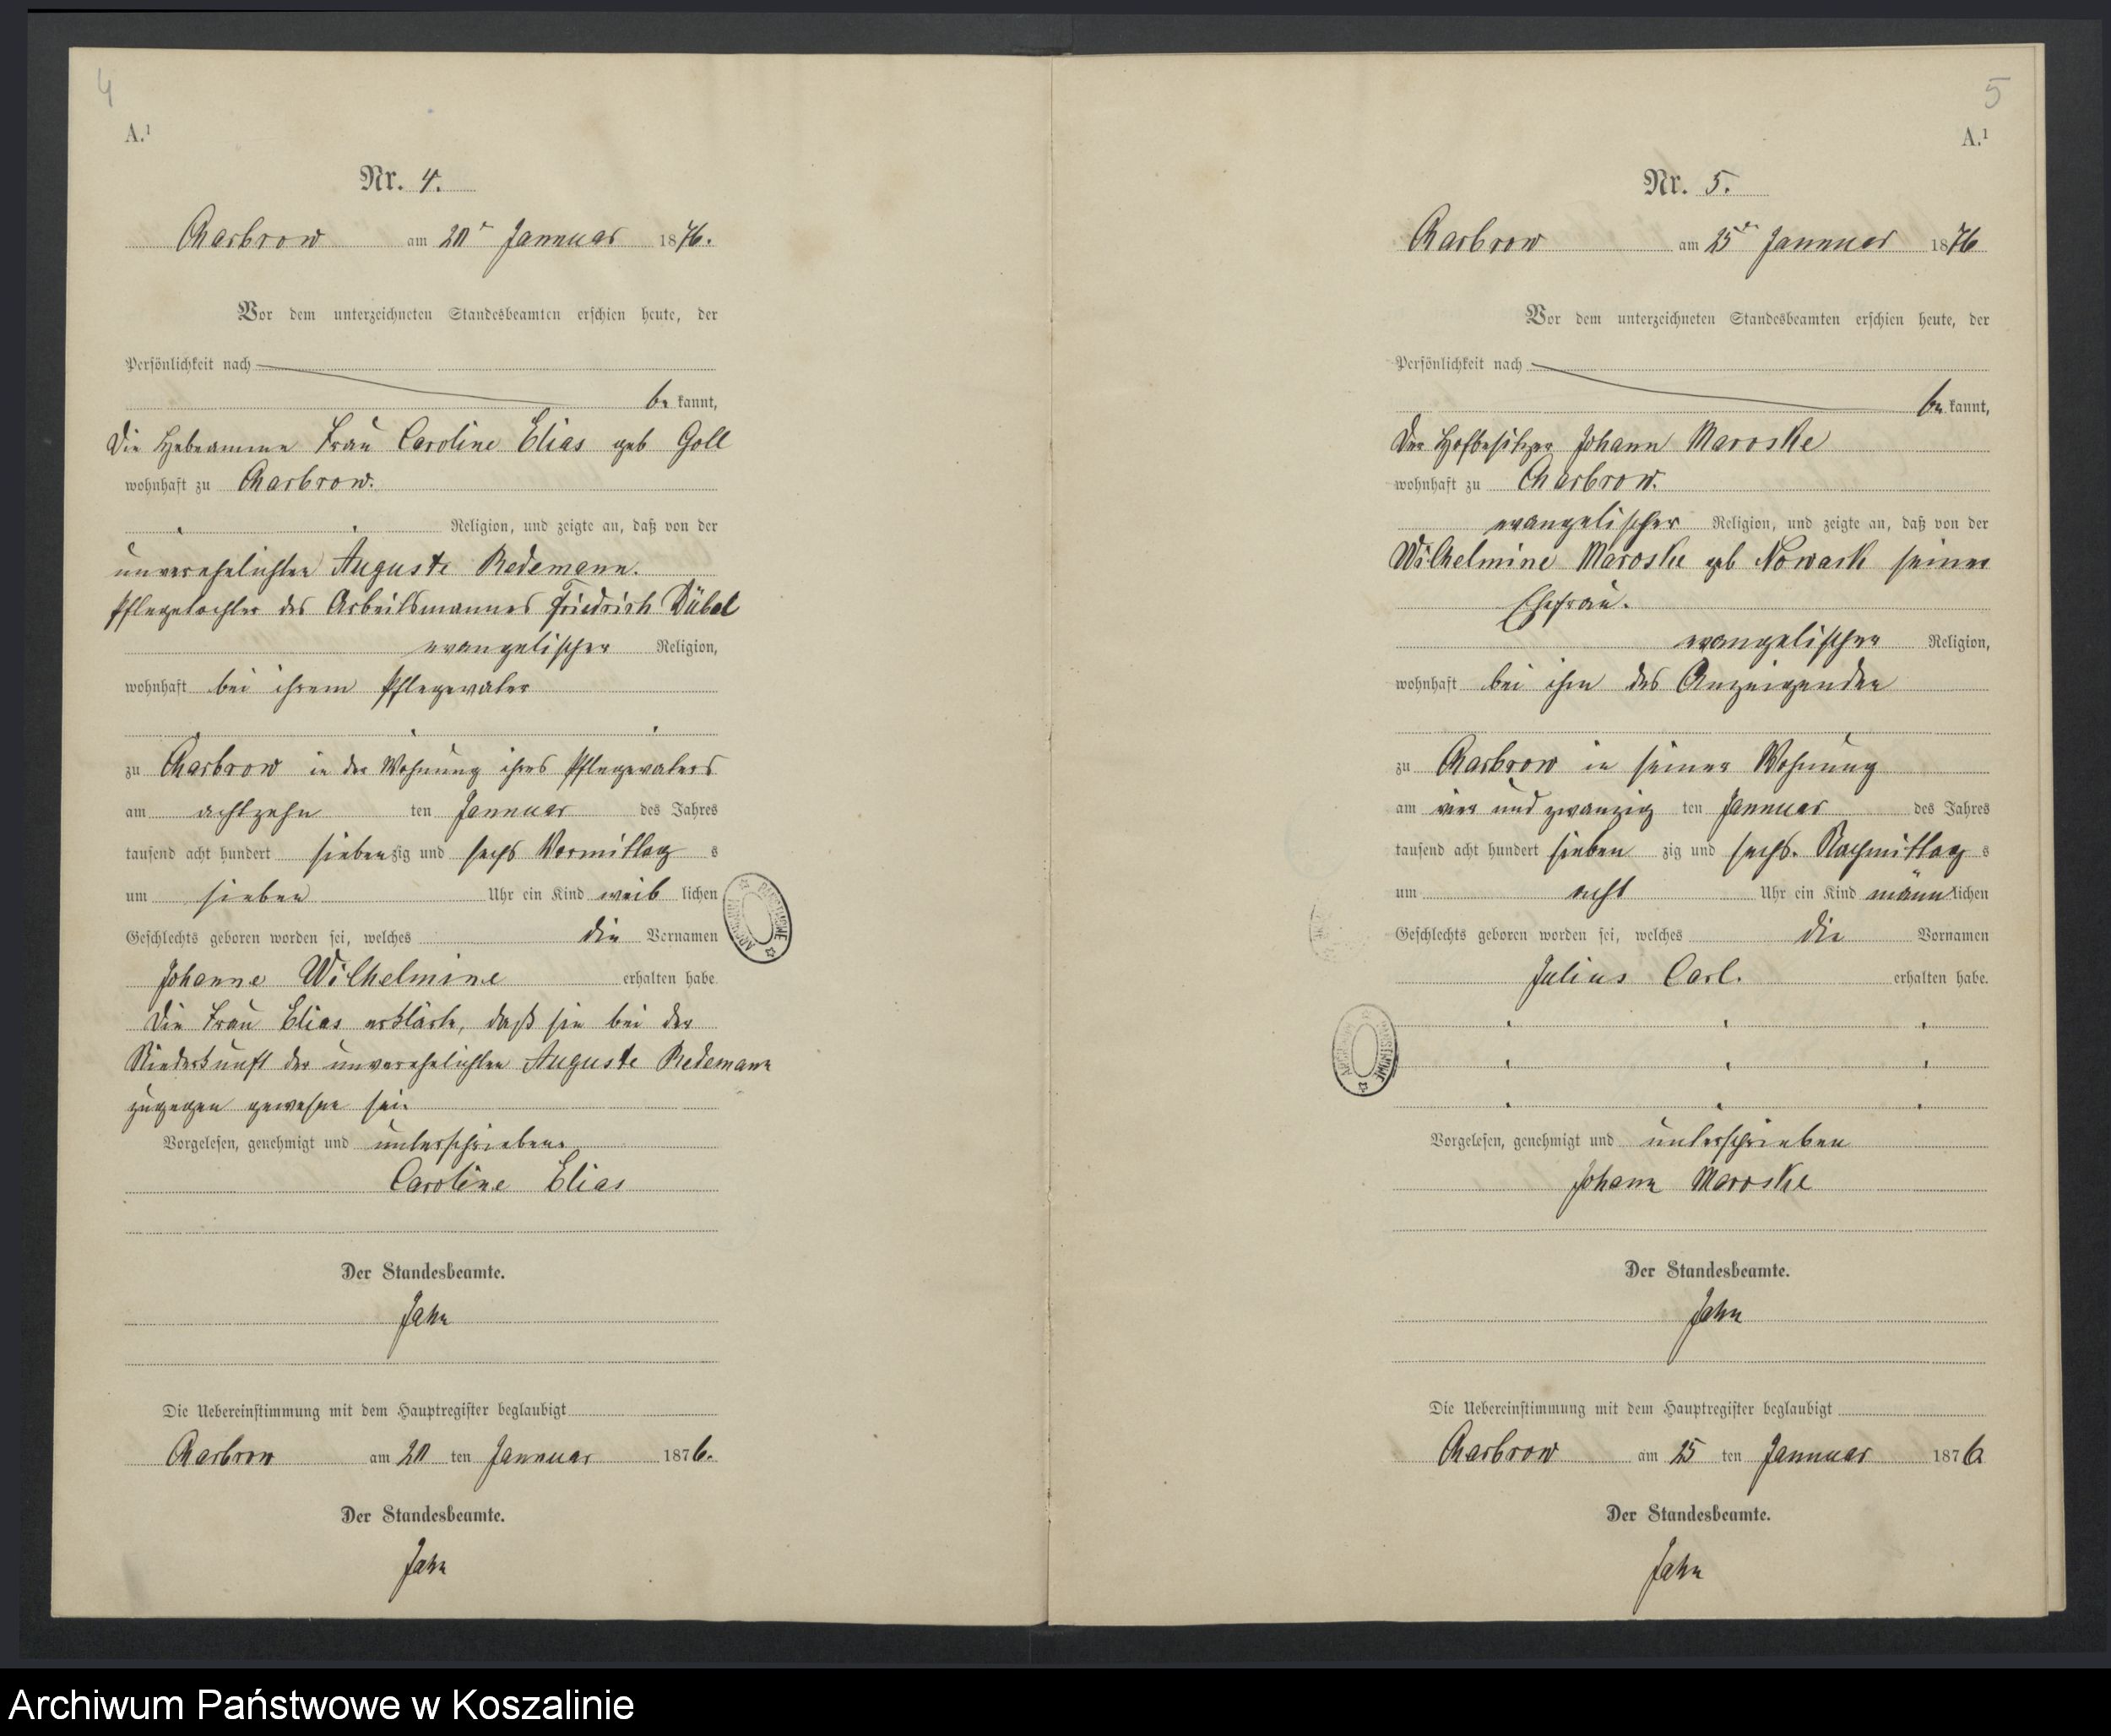 4
A.¹
Nr. 4.
Charbrow am 20ᵗ Januar 1876.
Vor dem unterzeichneten Standesbeamten erschien heute, der
Persönlichkeit nach
be kannt,
die Hebeamme Frau Caroline Elias geb Goll
wohnhaft zu Charbrow.
Religion, und zeigte an, daß von der
unverehelichten Auguste Redemann.
Pflegetochter des Arbeitsmannes Friedrich Dübel
evangelischer Religion,
wohnhaft bei ihrem Pflegevater
zu Charbrow in der Wohnung ihres Pflegevaters
am achtzehn ten Januar des Jahres
tausend acht hundert siebenzig und sechs Vormittag s
um sieben Uhr ein Kind weib lichen
Geschlechts geboren worden sei, welches die Vornamen
Johanne Wilhelmine erhalten habe.
Die Frau Elias erklärte, daß sie bei der
Niederkunft der unverehelichten Auguste Redemann
zugegen gewesen sei.
Vorgelesen, genehmigt und unterschrieben.
Caroline Elias
Der Standesbeamte.
Jahn
Die Uebereinstimmung mit dem Hauptregister beglaubigt
Charbrow am 20 ten Januar 1876.
Der Standesbeamte.
Jahn
ARCHIWUM PAŃSTWOWE
5
A.¹
Nr. 5.
Charbrow am 25ᵗᵉ Januar 1876
Vor dem unterzeichneten Standesbeamten erschien heute, der
Persönlichkeit nach
be kannt,
Der Hofbesitzer Johann Maroske
wohnhaft zu Charbrow.
evangelischer Religion, und zeigte an, daß von der
Wilhelmine Maroske geb Nowack seiner
Ehefrau.
evangelischer Religion,
wohnhaft bei ihm des Anzeigenden
zu Charbrow in seiner Wohnung
am vier und zwanzig ten Januar des Jahres
tausend acht hundert sieben zig und sechs. Nachmittag s
um acht Uhr ein Kind männ lichen
Geschlechts geboren worden sei, welches die Vornamen
Julius Carl. erhalten habe.
Vorgelesen, genehmigt und unterschrieben
Johann Maroske
Der Standesbeamte.
Jahn
Die Uebereinstimmung mit dem Hauptregister beglaubigt
Charbrow am 25 ten Januar 1876
Der Standesbeamte.
Jahn
ARCHIWUM PAŃSTWOWE
Archiwum Państwowe w Koszalinie